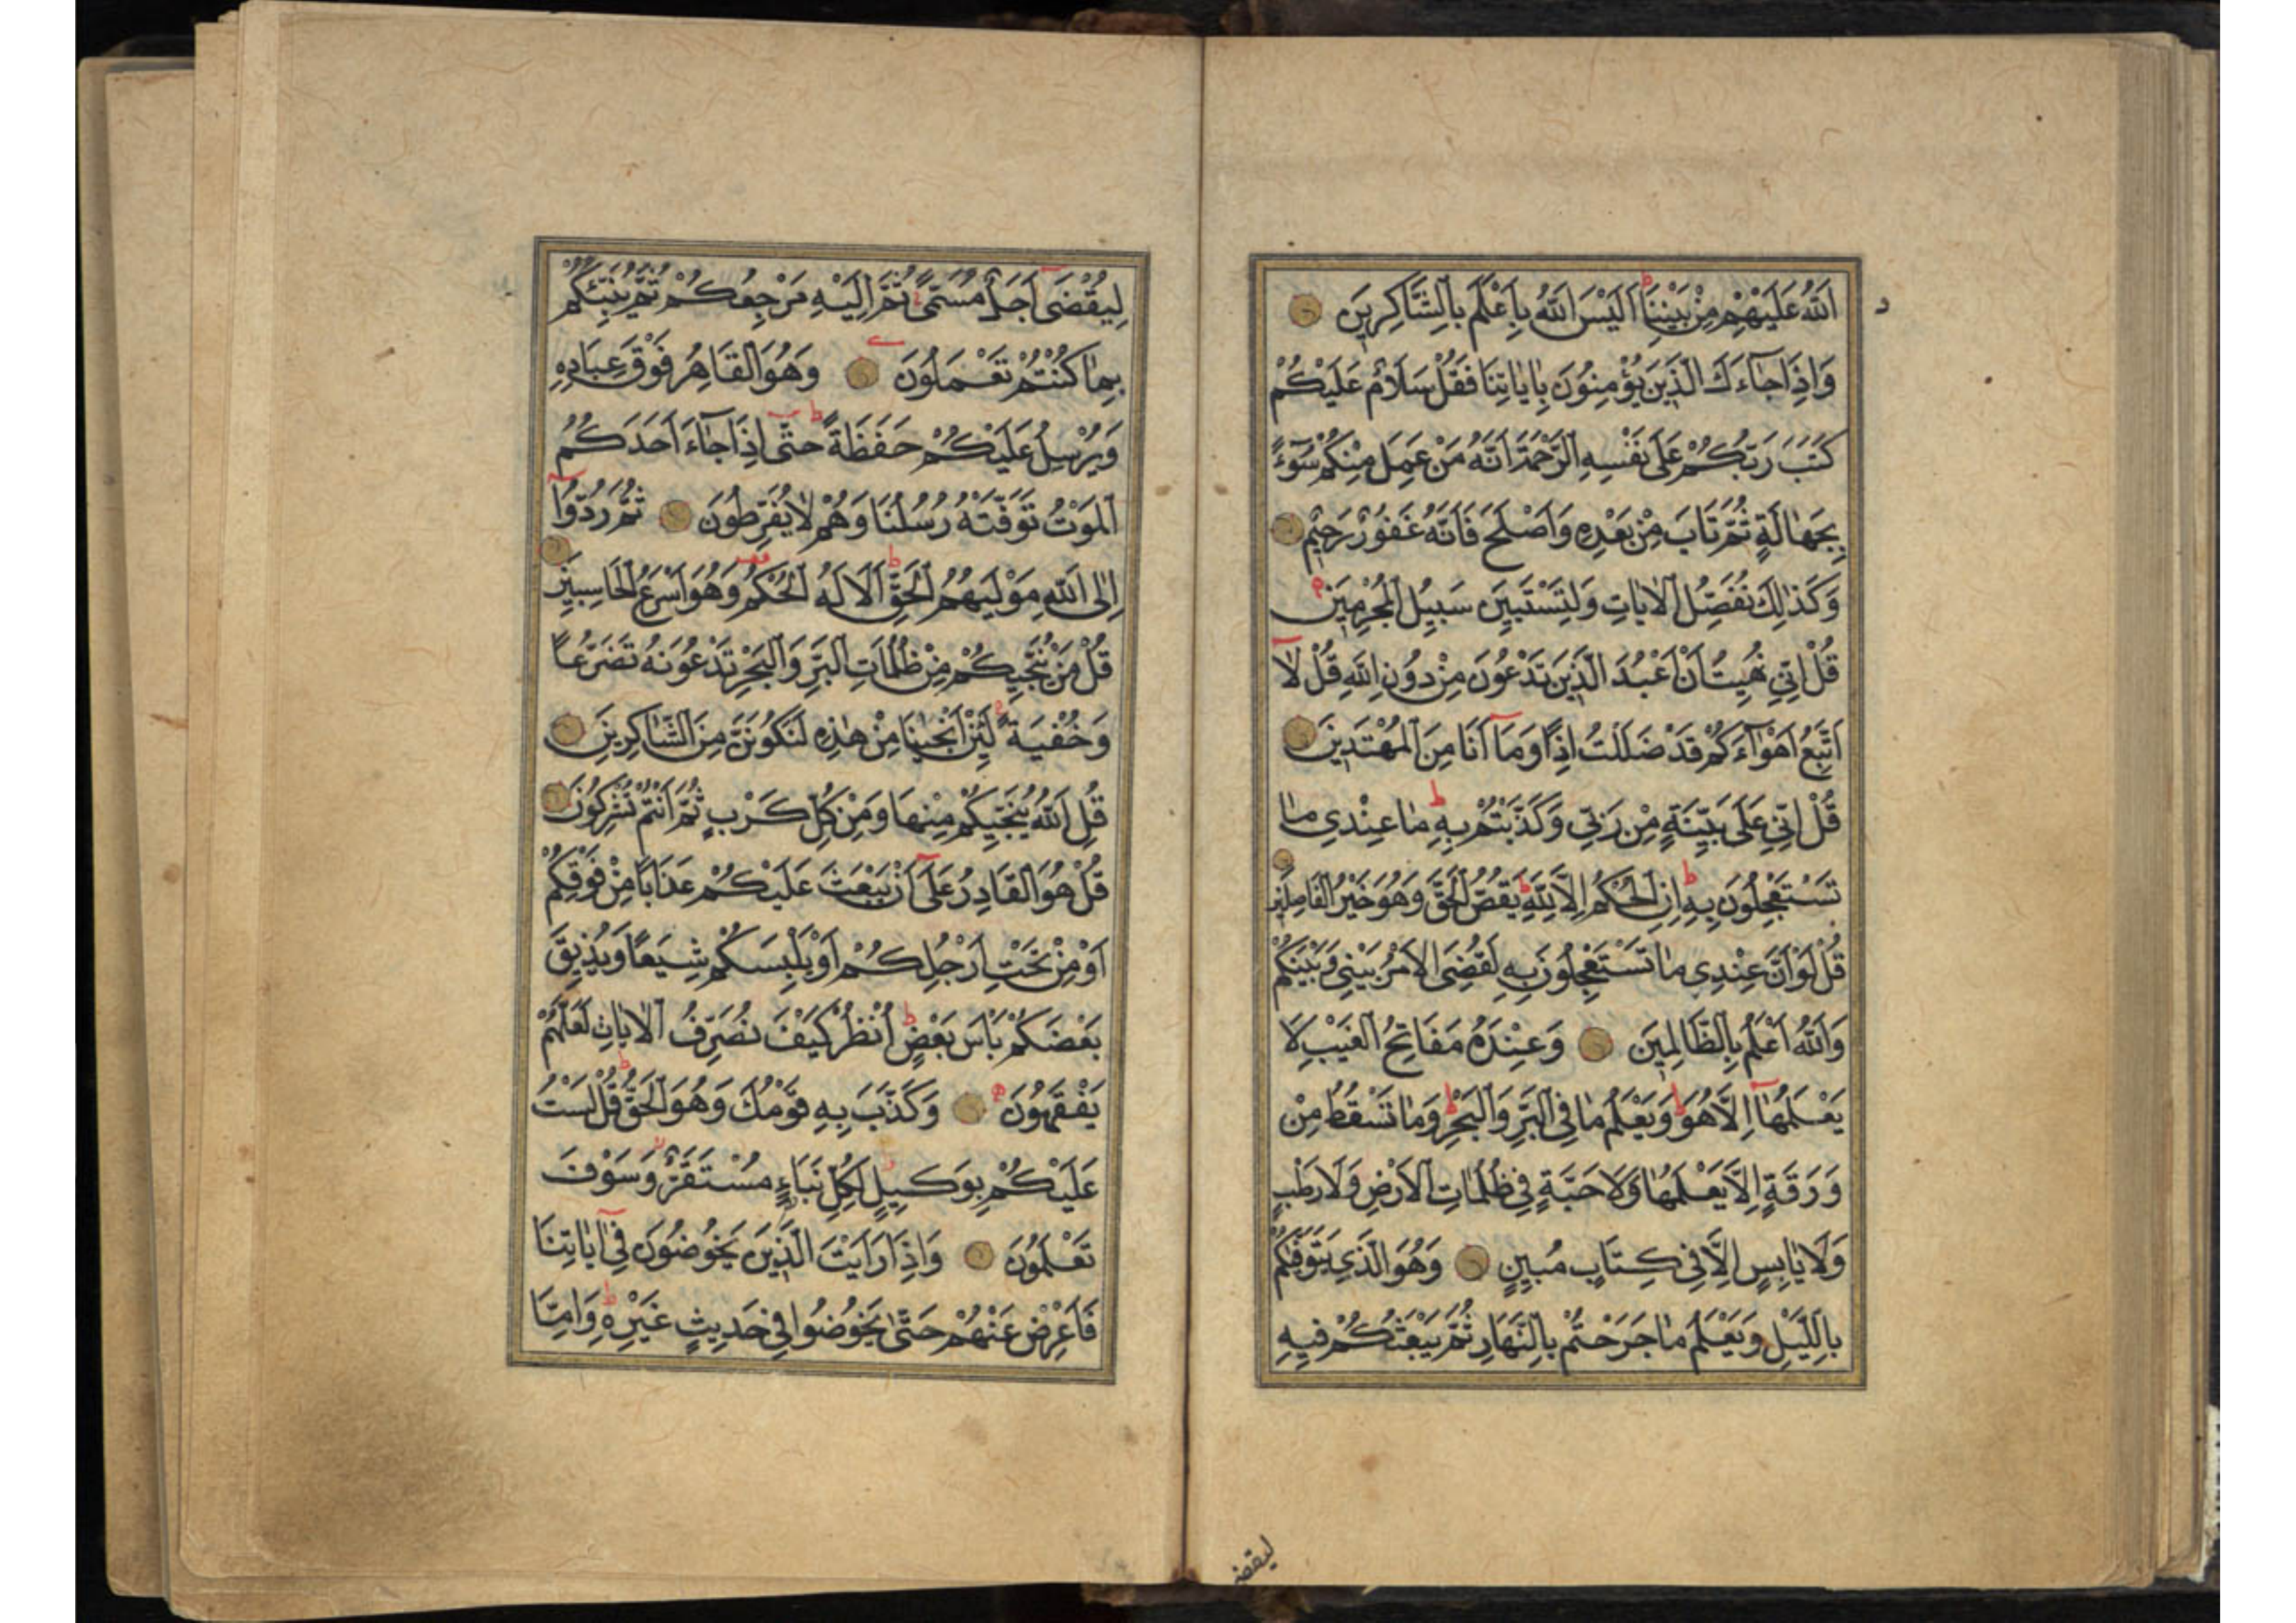 اَللهُ عَلَيْهِمْ مِنْ بَيْنِنَا اَلَيْسَ اللهُ بِاَعْلَمَ بِالشَّاكِرِينَ
وَاِذَا جَاءَكَ الَّذِينَ يُؤْمِنُونَ بِاٰيَاتِنَا فَقُلْ سَلَامٌ عَلَيْكُمْ
كَتَبَ رَبُّكُمْ عَلٰى نَفْسِهِ الرَّحْمَةَ اَنَّهُ مَنْ عَمِلَ مِنْكُمْ سُوءً
بِجَهَالَةٍ ثُمَّ تَابَ مِنْ بَعْدِهِ وَاَصْلَحَ فَاَنَّهُ غَفُورٌ رَحِيمٌ
وَكَذٰلِكَ نُفَصِّلُ الْاٰيَاتِ وَلِتَسْتَبِينَ سَبِيلُ الْمُجْرِمِينَ
قُلْ اِنِّي نُهِيتُ اَنْ اَعْبُدَ الَّذِينَ تَدْعُونَ مِنْ دُونِ اللهِ قُلْ لَا
اَتَّبِعُ اَهْوَاءَكُمْ قَدْ ضَلَلْتُ اِذًا وَمَا اَنَا مِنَ الْمُهْتَدِينَ
قُلْ اِنِّي عَلٰى بَيِّنَةٍ مِنْ رَبِّي وَكَذَّبْتُمْ بِهِ مَا عِنْدِي مَا
تَسْتَعْجِلُونَ بِهِ اِنِ الْحُكْمُ اِلَّا لِلّٰهِ يَقُصُّ الْحَقَّ وَهُوَ خَيْرُ الْفَاصِلِينَ
قُلْ لَوْ اَنَّ عِنْدِي مَا تَسْتَعْجِلُونَ بِهِ لَقُضِيَ الْاَمْرُ بَيْنِي وَبَيْنَكُمْ
وَاللهُ اَعْلَمُ بِالظَّالِمِينَ وَعِنْدَهُ مَفَاتِحُ الْغَيْبِ لَا
يَعْلَمُهَا اِلَّا هُوَ وَيَعْلَمُ مَا فِي الْبَرِّ وَالْبَحْرِ وَمَا تَسْقُطُ مِنْ
وَرَقَةٍ اِلَّا يَعْلَمُهَا وَلَا حَبَّةٍ فِي ظُلُمَاتِ الْاَرْضِ وَلَا رَطْبٍ
وَلَا يَابِسٍ اِلَّا فِي كِتَابٍ مُبِينٍ وَهُوَ الَّذِي يَتَوَفّٰيكُمْ
بِاللَّيْلِ وَيَعْلَمُ مَا جَرَحْتُمْ بِالنَّهَارِ ثُمَّ يَبْعَثُكُمْ فِيهِ
ليقضى
لِيُقْضٰى اَجَلٌ مُسَمًّى ثُمَّ اِلَيْهِ مَرْجِعُكُمْ ثُمَّ يُنَبِّئُكُمْ
بِمَا كُنْتُمْ تَعْمَلُونَ وَهُوَ الْقَاهِرُ فَوْقَ عِبَادِهِ
وَيُرْسِلُ عَلَيْكُمْ حَفَظَةً حَتّٰى اِذَا جَاءَ اَحَدَكُمُ
الْمَوْتُ تَوَفَّتْهُ رُسُلُنَا وَهُمْ لَا يُفَرِّطُونَ ثُمَّ رُدُّوا
اِلَى اللهِ مَوْلٰيهُمُ الْحَقِّ اَلَا لَهُ الْحُكْمُ وَهُوَ اَسْرَعُ الْحَاسِبِينَ
قُلْ مَنْ يُنَجِّيكُمْ مِنْ ظُلُمَاتِ الْبَرِّ وَالْبَحْرِ تَدْعُونَهُ تَضَرُّعًا
وَخُفْيَةً لَئِنْ اَنْجَيْنَا مِنْ هٰذِهِ لَنَكُونَنَّ مِنَ الشَّاكِرِينَ
قُلِ اللهُ يُنَجِّيكُمْ مِنْهَا وَمِنْ كُلِّ كَرْبٍ ثُمَّ اَنْتُمْ تُشْرِكُونَ
قُلْ هُوَ الْقَادِرُ عَلٰى اَنْ يَبْعَثَ عَلَيْكُمْ عَذَابًا مِنْ فَوْقِكُمْ
اَوْ مِنْ تَحْتِ اَرْجُلِكُمْ اَوْ يَلْبِسَكُمْ شِيَعًا وَيُذِيقَ
بَعْضَكُمْ بَاْسَ بَعْضٍ اُنْظُرْ كَيْفَ نُصَرِّفُ الْاٰيَاتِ لَعَلَّهُمْ
يَفْقَهُونَ وَكَذَّبَ بِهِ قَوْمُكَ وَهُوَ الْحَقُّ قُلْ لَسْتُ
عَلَيْكُمْ بِوَكِيلٍ لِكُلِّ نَبَاءٍ مُسْتَقَرٌّ وَسَوْفَ
تَعْلَمُونَ وَاِذَا رَاَيْتَ الَّذِينَ يَخُوضُونَ فِي اٰيَاتِنَا
فَاَعْرِضْ عَنْهُمْ حَتّٰى يَخُوضُوا فِي حَدِيثٍ غَيْرِهِ وَاِمَّا